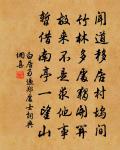 聞道移居村塢間
竹林多處獨開關
故來不是求他事
暫借南亭一望山
白居易過鄭處士詞典
網